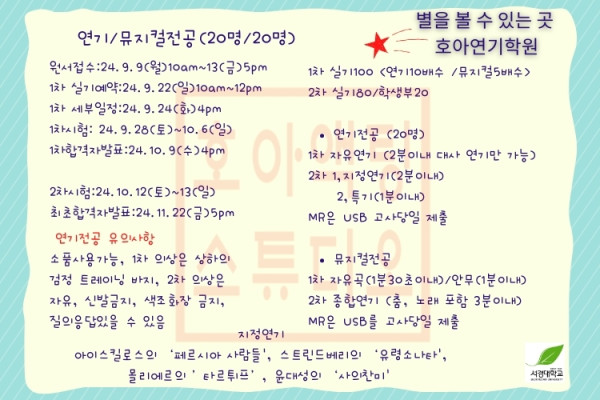 별을 볼 수 있는 곳
호아연기학원
연기/뮤지컬전공(20명/20명)
원서접수:24.9.9(월)10am~13(금)5pm
1차 실기예약:24.9.22(일)10am~12pm
1차 세부일정:24.9.24(화)4pm
1차시험: 24.9.28(토)~10.6(일)
1차합격자발표:24.10.9(수)4pm
2차시험:24.10.12(토)~13(일)
최초합격자발표:24.11.22(금)5pm
연기전공 유의사항
소품사용가능, 1차 의상은 상하의
검정 트레이닝 바지, 2차 의상은
자유, 신발금지, 색조화장 금지,
질의응답있을 수 있음
1차 실기100 <연기10배수 /뮤지컬5배수>
2차 실기80/학생부20
• 연기전공 (20명)
1차 자유연기 (2분이내 대사 연기만 가능)
2차 1,지정연기(2분이내)
2,특기(1분이내)
MR은 USB 고사당일 제출
• 뮤지컬전공
1차 자유곡(1분30초이내)/안무(1분이내)
2차 종합연기 (춤, 노래 포함 3분이내)
MR은 USB를 고사당일 제출
지정연기
아이스킬로스의 '페르시아 사람들', 스트린드베리의 '유령소나타',
몰리에르의 ' 타르튀프' , 윤대성의 '사의찬미'
호아액팅
스튜디오
서경대학교